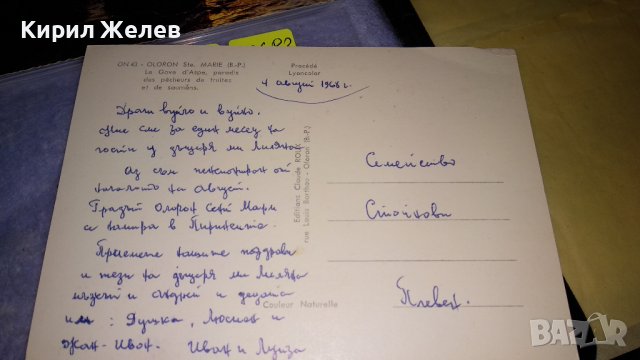 Кирил Желев
ON 43 - OLORON Ste. MARIE (B.-P.)
Le Gave d'Aspe, paradis
des pêcheurs de truites
et de saumons.
Procédé
Lyoncolor
4 август 1968 г.
Драги вуйчо и вуйно,
Ние сме за един месец на
гости у дъщеря ми Лиляна
Аз съм пенсионирам от
началото на август.
Градът Олорон Сент Мари
се намира в Пиринеите.
Приемете нашите поздрави
и тези на дъщеря ми Лиляна
мъжът и
и децата
им: Душка, Люсиен и
Жан-Ивон. Иван и Луиза
Editions Claude ROUX
rue Louis Barthou - Oloron (B.-P.)
Couleur Naturelle
Семейство
Стойкови
Плевен.
BAZAR
bazar.bg